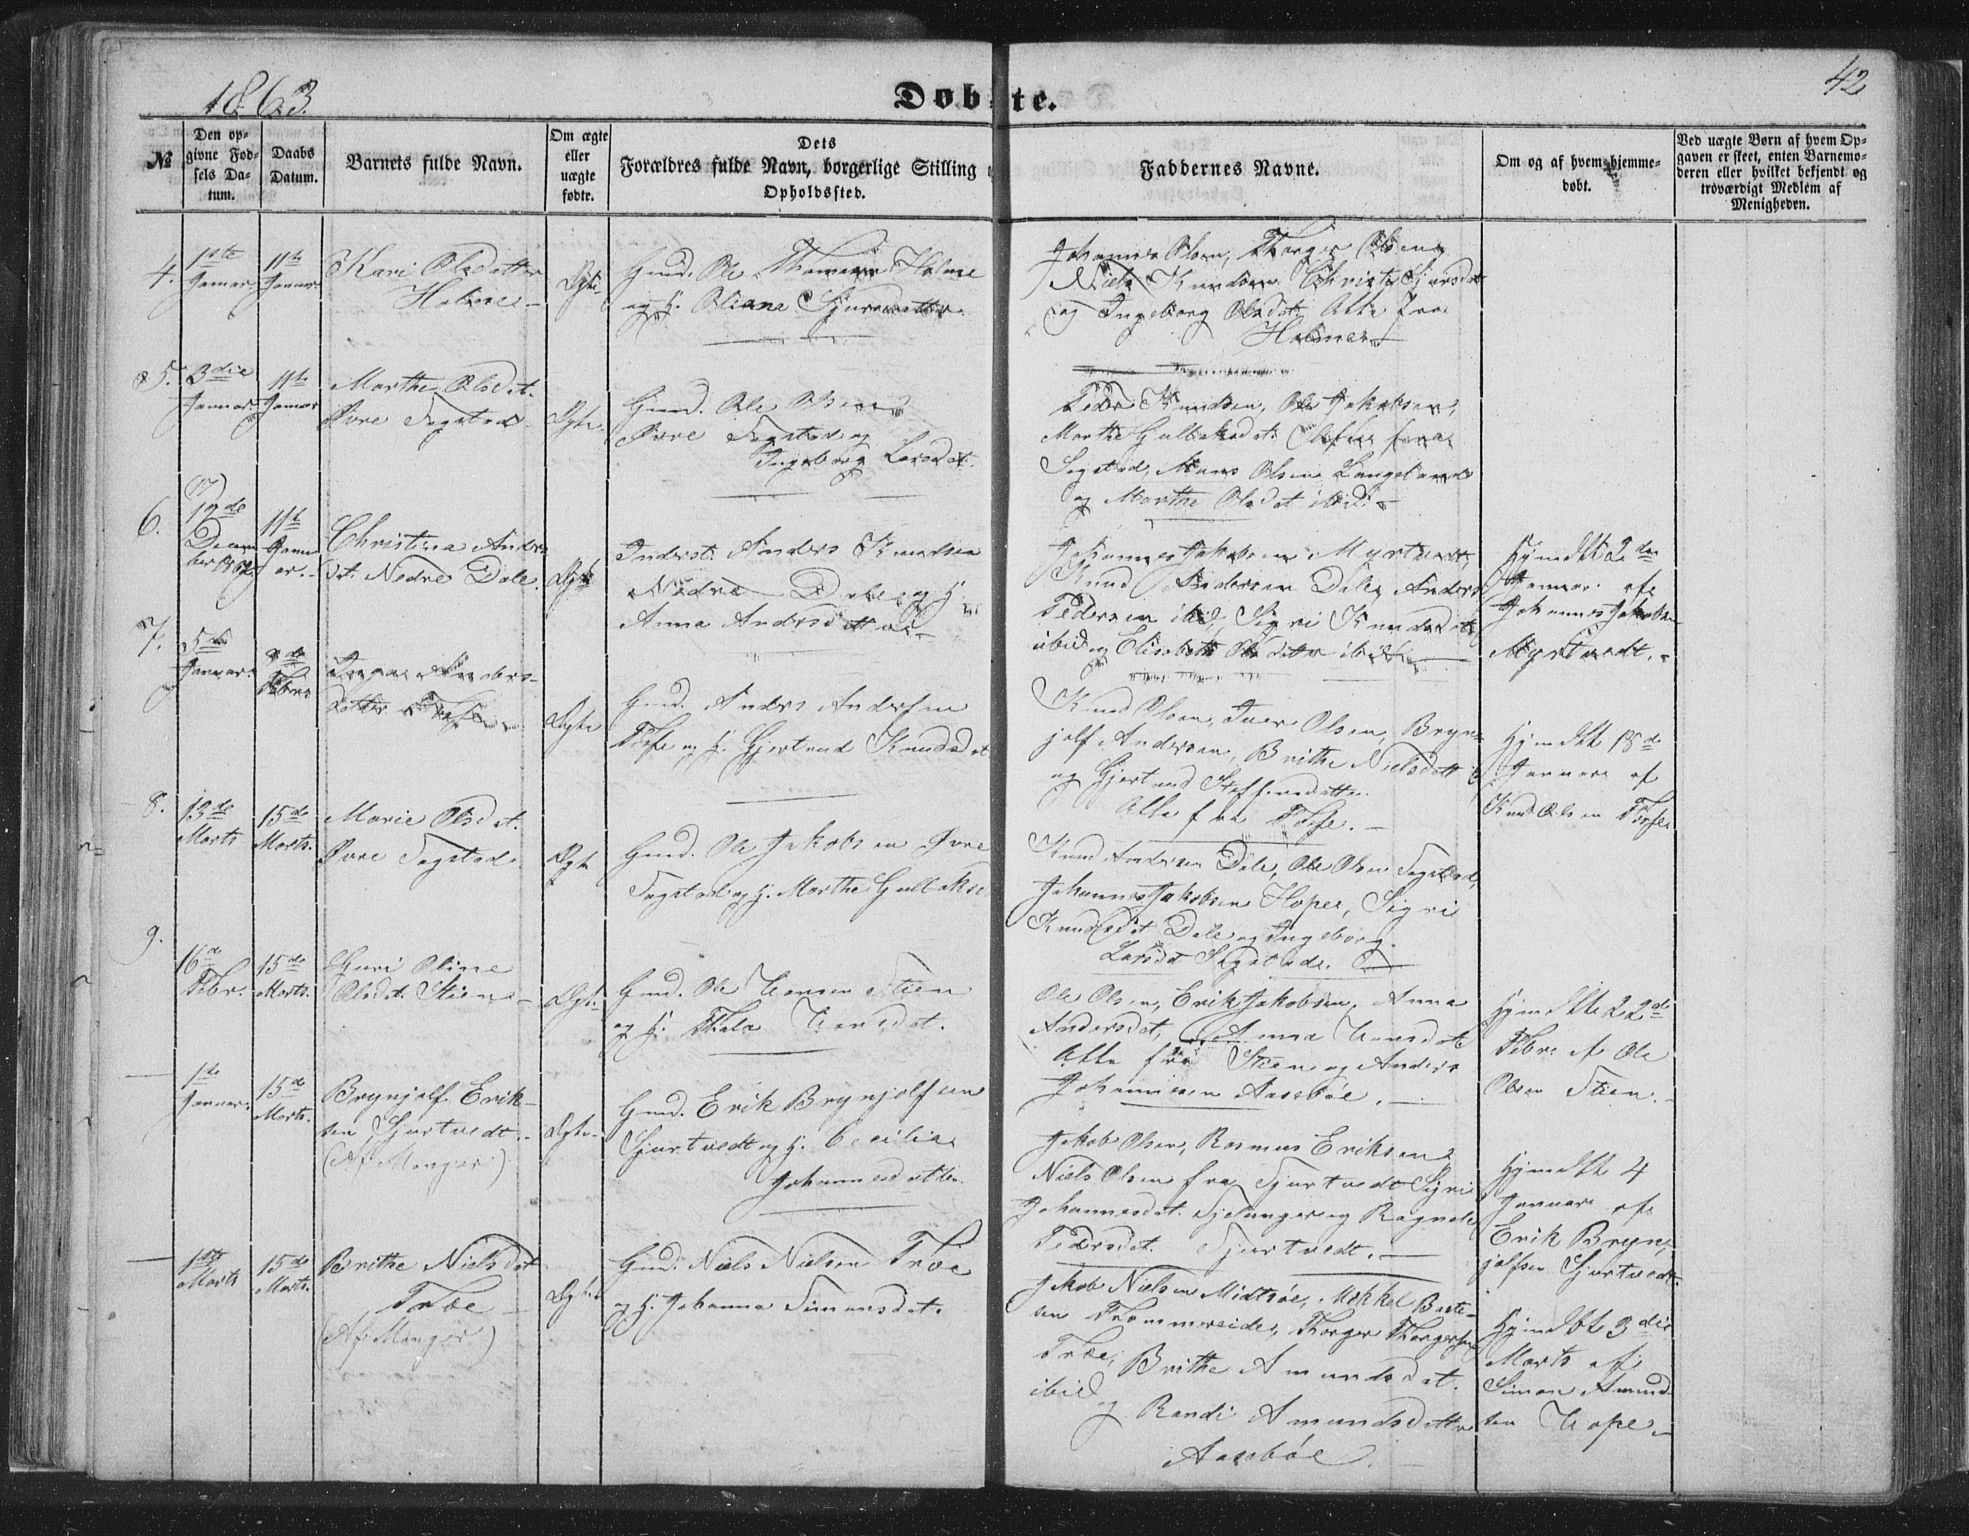 1863.
Døbte.
42
№
Den op-
givne Fød-
sels Da-
tum.
Daabs
Datum.
Barnets fulde Navn.
Om ægte
eller
uægte
fødte.
Dets
Forældres fulde Navn, borgerlige Stilling
Opholdssted.
Faddernes Navne.
Om og af hvem hjemme-
døbt.
Ved uægte Børn af hvem Op-
gaven er skeet, enten Barnemo-
deren eller hvilket bekjendt og
troværdigt Medlem af
Menigheden.
4.
1ste
Januar
11te
Januar
Kari Olsdatter
Holme
Ægte
Gmd. Ole Thomesen Holme
og H. Oliane Sjursdatter
Johannes Olsen, Thorger Olsen,
Niels Knudsen, Christi Sjursdat
og Ingeborg Olsdat, Alle fra
Holmen
5.
3die
Januar
11te
Januar
Marthe Olsdat.
Øvre Sogstad
Ægte
Gmd. Ole Olsen
Øvre Sogstad og
Ingeborg Larsdat.
Peder Knudsen, Ole Jakobsen,
Marthe Gullaksdat. fra
Sogstad, Mons Olsen Langeland
og Marthe Olsdat ibid.
6.
de
Decem
ber 1862
11te
Janu
ar.
Christina Anders
dat. Nedre Dale.
Ægte
Inderst. Anders Knudsen
Nedre Dale og H.
Anna Andersdatter
Johannes Jakobsen Myrtvedt,
Knud Andersen Dale, Anders
Pedersen ibid, Sigri Knudsdat
ibid og Elisabeth Olsdatter ibid
Hjmdbt 2den
Januar af
Johannes Jakobsen
Myrtvedt.
7.
5te
Januar
de
Febr.
Anders-
datter Tosse
Ægte
Gmd. Anders Andersen
Tosse og H. Gjertrud Knudsdat
Knud Olsen, Iver Olsen, Bryn-
jolf Andersen, Brithe Nielsdatt
og Gjertrud Steffensdatter
Alle fra Tosse.
Hjmdbt 18de
Januar af
Knud Olsen Tosse
8.
13de
Marts
15de
Marts.
Marie Olsdat.
Øvre Sogstad
Ægte
Gmd. Ole Jakobsen Øvre
Sogstad og H. Marthe Gullaks
Knud Andersen Dale, Ole Olsen Sogstad,
Johannes Jakobsen Hope, Sigri
Knudsdat Dale og Ingeborg
Larsdat Sogstad.
9.
16de
Febr.
15de
Marts.
Guri Oline
Olsdat. Steen
Ægte
Gmd. Ole Hansen Steen
og H. Hansdat.
Ole Olsen, Erik Jakobsen, Anna
Andersdat, Anna Hansdat
Alle fra Steen og Anders
Johannesen Aasebøe.
Hjmdbt 22de
Febr. af Ole
Olsen Steen.
1ste
Januar.
15de
Marts.
Brynjolf Erik-
sen Sjurtvedt.
(Af Manger)
Ægte
Gmd. Erik Brynjolfsen
Sjurtvedt og H. Cecilia
Johannesdatter
Jakob Olsen, Rasmus Eriksen,
Niels Olsen fra Sjurtvedt, Sigri
Johannesdat. og Ragnele
Pedersdat. Sjurtvedt.
Hjmdbt 4
Januar af
Erik Bryn-
jolfsen Sjurtvedt
1ste
Marts
15de
Marts.
Brithe Nielsdat
Træe
(Af Manger)
Ægte
Gmd. Niels Nielsen Træe
og H. Johanna Simonsdat.
Jakob Nielsen Midtsøe, Mikkel
sen Thommereide, Thorger Thorgersen
Træe, Brithe Amundsdat.
ibid og Randi Amundsdatter
Aasebøe
Hjmdbt 3die
Marts af
Simon Amund-
sen Hope